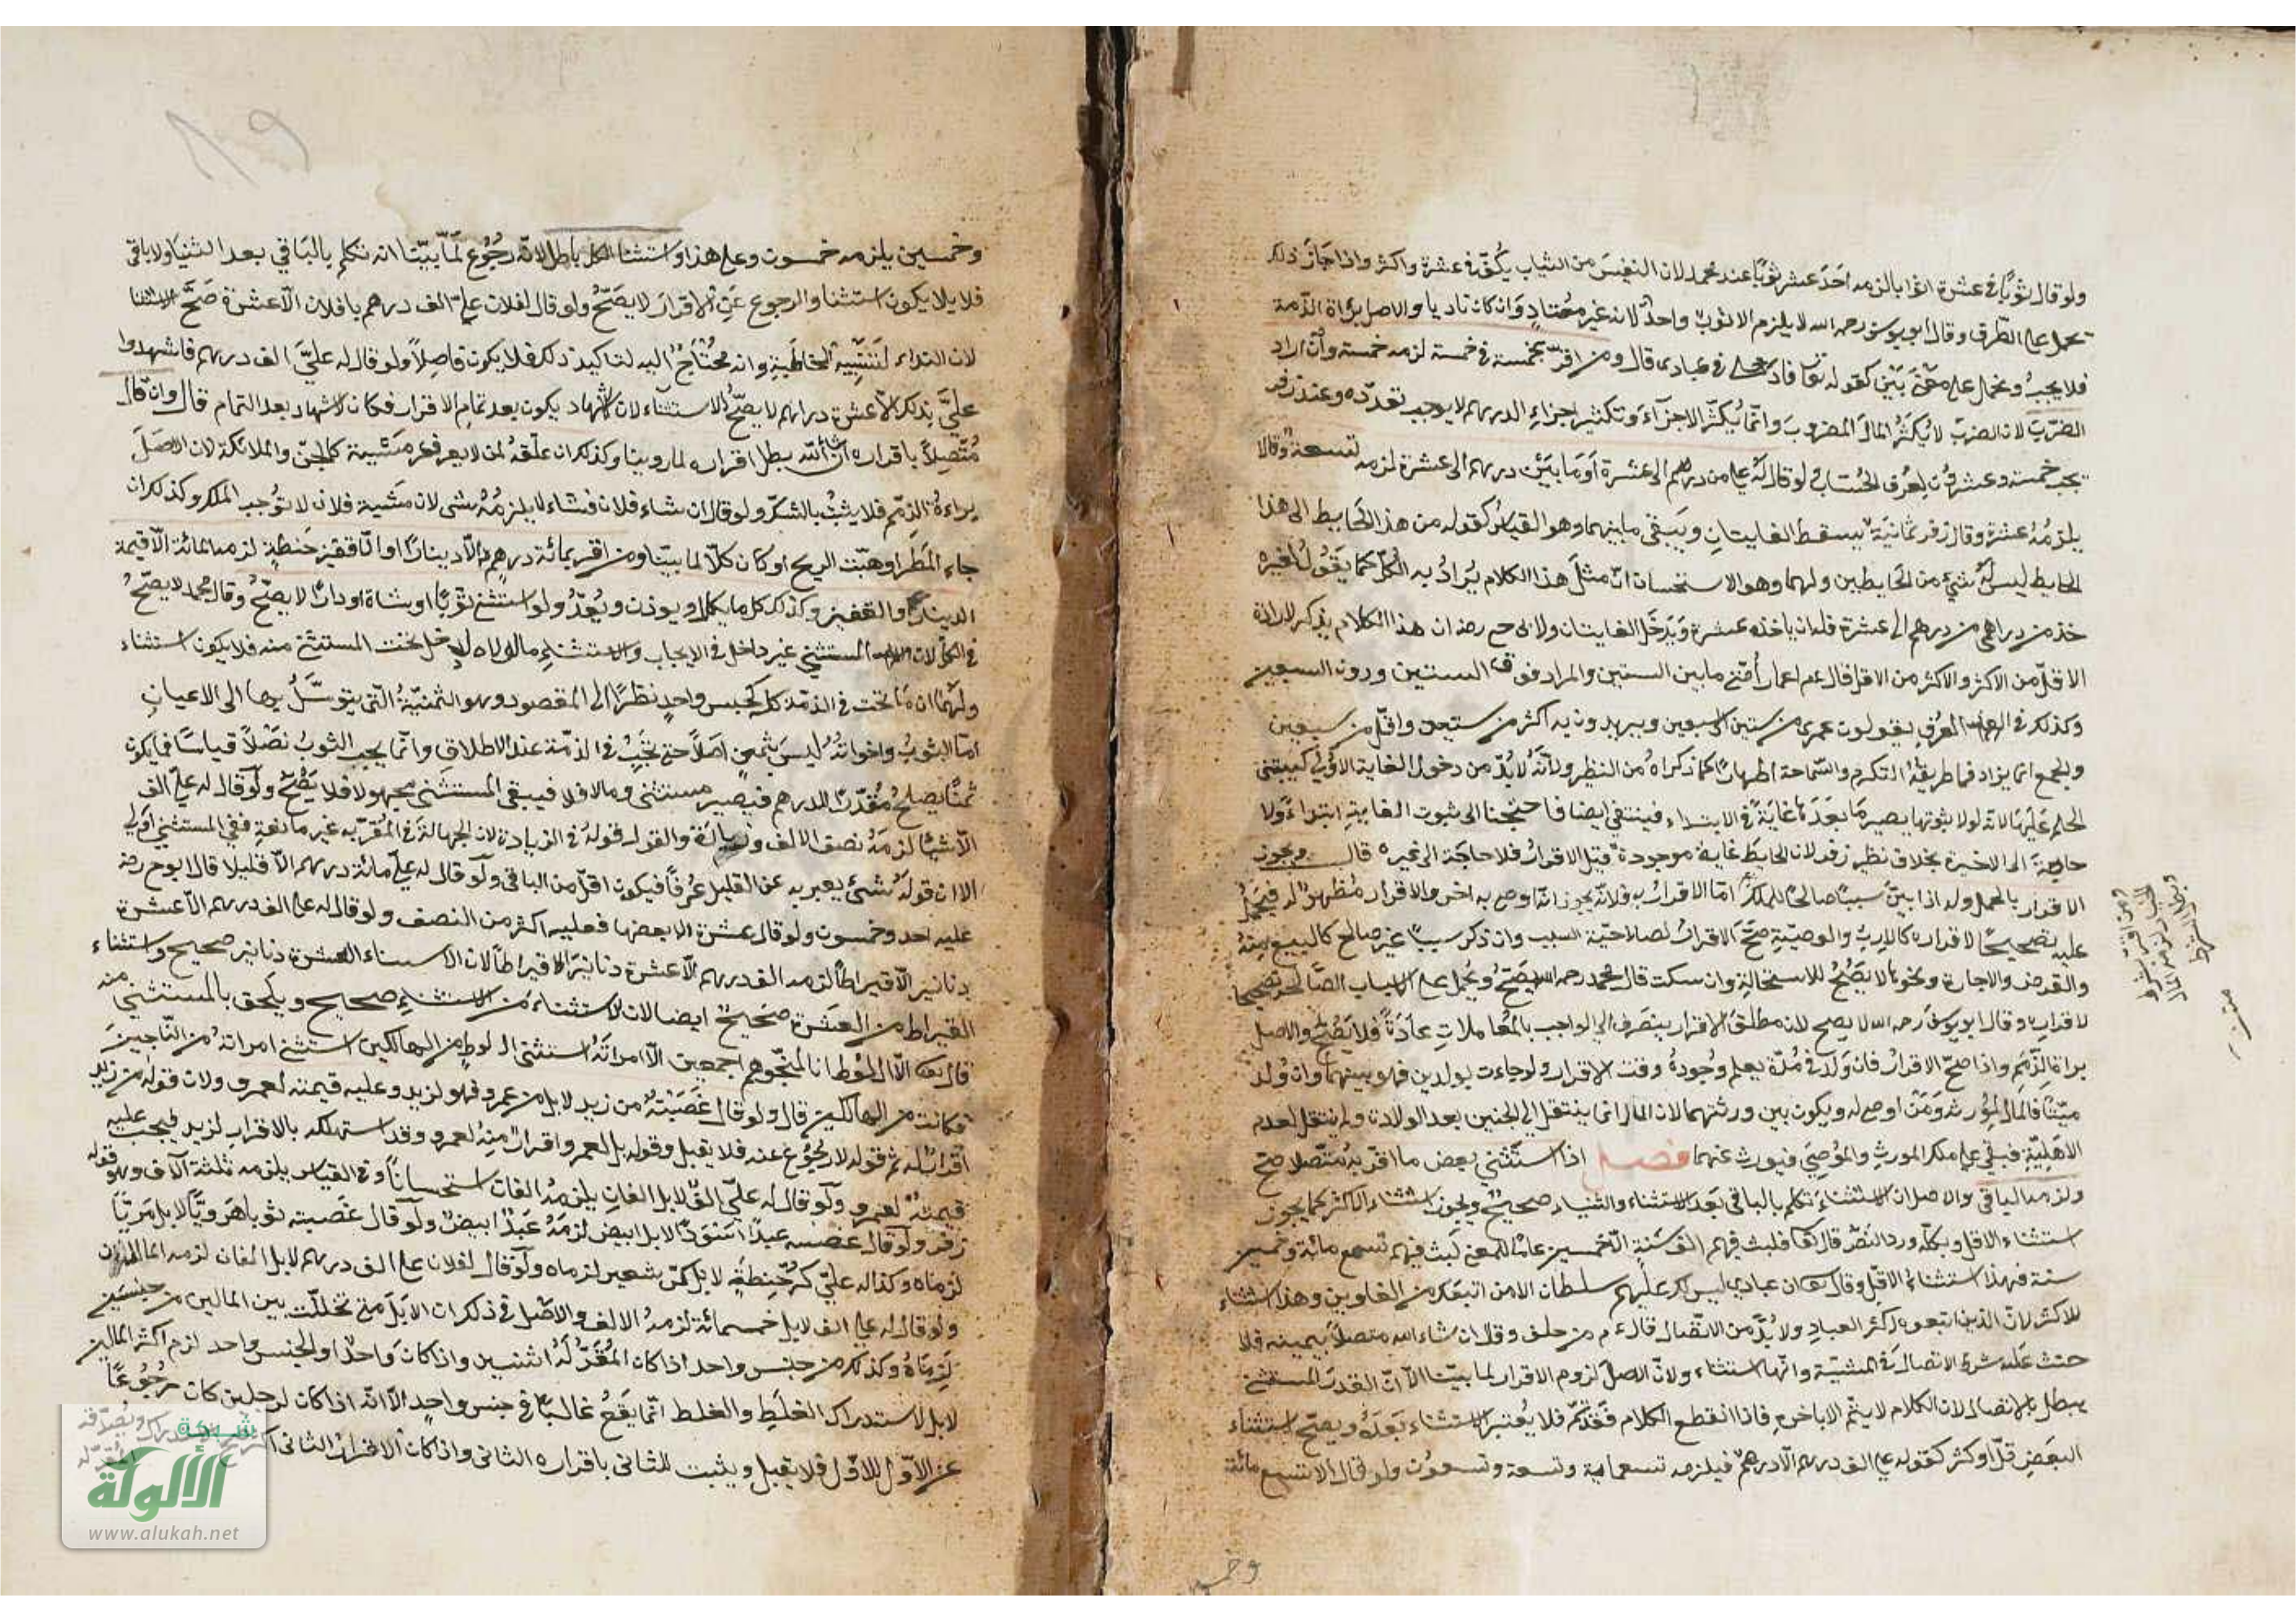 ولو قال ثوبًا في عشرة اثوابا لزمه احد عشر ثوبًا عند محمد لان النفيس من الثياب يُكفّ في عشرة واكثر واذا جاز ذلك
تحمل على الظرف وقال ابو يوسف رحمه الله لا يلزمه الا ثوب واحد لانه غير معتاد وان كان نادرا والاصل براة الذمة
فلا يجب ويحمل على معنى بين كقوله تعا فادخلي في عبادي قال ومن اقر بخمسة في خمسة لزمه خمسة وان اراد
الضرب لان الضرب لا يكثر المال المضروب وانما يكثر الاجزآء وتكثير اجزاء الدرهم لا يوجب تعدّده وعند زفر
يجب خمسة وعشرون لعرف الحساب ولو قال له علي من درهم الى عشرة او ما بين درهم الى عشرة لزمه تسعة وقالا
يلزمه عشرة وقال زفر ثمانية يسقط الغايتان ويبقى ما بينهما وهو القياس كقوله من هذا الحايط الى هذا
الحايط ليس له شيء من الحايطين ولهما وهو الاستحسان ان مثل هذا الكلام يراد به الكل كما يقول لغيره
خذ من دراهمي من درهم الى عشرة فله ان ياخذ عشرة ويدخل الغايتان ولابي ح رضه ان هذا الكلام يذكر لارادة
الاقل من الاكثر والاكثر من الاقل قال عم اعمار أمتي ما بين الستين والمراد فوق الستين ودون السبعين
وكذلك في العرف يقولون عمري من ستين الى سبعين ويريدون به اكثر من ستين واقل من سبعين
والجمع انما يراد فيما طريقه التكرم والسماحة اظهارًا كما ذكراه من النظير ولانه لا بد من دخول الغاية الاولى ليبتني
الحكم عليها لانه لولا ثبوتها يصير ما بعدها غاية في الابتداء فينتفي ايضا فاحتجنا الى ثبوت الغاية ابتداءً ولا
حاجة الى الاخيرة بخلاف نظير زفر لان الحايط غاية موجودة قبل الاقرار فلا حاجة الى غيره قال ويجوز
الاقرار بالحمل وله اذا بين سببًا صالحًا للملك اما الاقرار به فلانه يجوز انه اوصى به اخر والاقرار مظهر له فيحمل
عليه تصحيحًا لاقراره كالارث والوصية صح الاقرار لصلاحية السبب وان ذكر سببًا غير صالح كالبيع منه
والقرض والاجارة ونحوها لا يصح للاستحالة وان سكت قال محمد رحمه الله يصح ويحمل على الاسباب الصالحة تصحيحا
لاقراره وقال ابو يوسف رحمه الله لا يصح لان مطلق الاقرار ينصرف الى الواجب بالمعاملات عادة فلا يصح والاصل
براة الذمم واذا صح الاقرار فان ولد في مدة يعلم وجوده وقت الاقرار ولو جاءت بولدين فهو بينهما وان ولد
ميتًا فالمال لمورثه ومن اوصى له ويكون بين ورثتهما لان المال انما ينتقل الى الجنين بعد الولادة ولم ينتقل لعدم
الاهلية فبقي على ملك المورث والموصي فيورث عنهما فصل اذا استثنى بعض ما اقر به متصلا صح
ولزمه الباقي والاصل ان الاستثناء تكلم بالباقي بعد الاستثناء والثنياء صحيح ويجوز استثناء الاكثر كما يجوز
استثناء الاقل وبكله ورد النص قال تعا فلبث فيهم الف سنة الا خمسين عامًا المعنى لبث فيهم تسع مائة وخمسين
سنة فهذا استثناء الاقل وقال تعا ان عبادي ليس لك عليهم سلطان الا من اتبعك من الغاوين وهذا استثناء
للاكثر لان الذين اتبعوه اكثر العباد ولا بد من الاتصال قال عم من حلف وقال ان شاء الله متصلا بيمينه فلا
حنث عليه شرط الاتصال في المشية وانها استثناء ولان الاصل لزوم الاقرار لما بينا الا ان القدر المستثنى
يبطل بالاتصال لان الكلام لا يتم الا باخره فاذا انقطع الكلام فقد تم فلا يعتبر الاستثناء بعده ويصح استثناء
البعض قل او كثر كقوله علي الف درهم الا درهم فيلزمه تسعماية وتسعة وتسعون ولو قال الا تسع مائة
ومن اقر بشرط
الخيار لزمه المال
وبطل الشرط
متن
وخمسين
وخمسين يلزمه خمسون وعلى هذا واستثنا الكل باطل لانه رجوع لما بينا انه تكلم بالباقي بعد الثنيا ولا باقي
فلا يكون استثنا والرجوع عن الاقرار لا يصح ولو قال لفلان علي الف درهم يا فلان الا عشرة صح الاستثنا
لان النداء لتنبيه المخاطب وانه محتاج اليه لتاكيد ذلك فلا يكون فاصلا ولو قال له علي الف درهم فاشهدوا
علي بذلك الا عشرة دراهم لا يصح الاستثناء لان الاشهاد يكون بعد تمام الاقرار فكان الاشهاد بعد التمام قال وان قال
متصلا باقراره ان شاء الله بطل اقراره لما روينا وكذلك ان علقه لمن لا يعرف مشيته كالجن والملائكة لان الاصل
براءة الذمم فلا يثبت بالشك ولو قال ان شاء فلان فشاء لا يلزمه شى لان مشية فلان لا توجب الملك وكذلك ان
جاء المطر او هبت الريح او كان كلا لما بينا ومن اقر بمائة درهم الا دينارًا او الا قفيز حنطة لزمه المائة الا قيمة
الدينار والقفيز وكذلك كل ما يكال ويوزن ويعد ولو استثنى ثوبًا او شاة او دارًا لا يصح وقال محمد لا يصح
في الكل لان المستثنى غير داخل في الايجاب والاستثناء ما لولاه لدخل تحت المستثنى منه فلا يكون استثناء
ولهما ان ما يجب في الذمة كله كجنس واحد نظرًا الى المقصود وهو الثمنية التي يتوسل بها الى الاعيان
اما الثوب واخواته ليس بثمن اصلا حتى يجب في الذمة عند الاطلاق وانما يجب الثوب نصًا لا قياسًا فما يكون
ثمنًا يصلح مقدرًا للدرهم فيصير مستثنى وما لا فلا فيبقى المستثنى مجهولا فلا يصح ولو قال له علي الف
الا شيئًا لزمه نصف الالف وزيادة والقول قوله في الزيادة لان الجهالة في المقر به غير مانعة ففي المستثنى اولى
الا ان قوله شئ يعبر به عن القليل عرفًا فيكون اقل من الباقي ولو قال له علي مائة درهم الا قليلا قال ابو ح رضه
عليه احد وخمسون ولو قال عشرة الا بعضها فعليه اكثر من النصف ولو قال له علي الف درهم الا عشرة
دنانير الا قيراطًا لزمه الف درهم الا عشرة دنانير الا قيراطًا لان الاستثناء العشرة دنانير صحيح واستثناء
القيراط من العشرة صحيح ايضا لان الاستثناء من الاستثناء صحيح ويلحق بالمستثنى منه
قال تعا الا آل لوط انا لمنجوهم اجمعين الا امراته استثنى آل لوط من الهالكين استثنى امراته من الناجين
فكانت من الهالكين قال ولو قال غصبته من زيد لا بل من عمرو فهو لزيد وعليه قيمته لعمرو ولان قوله من زيد
اقرار له ثم قوله لا رجوع عنه فلا يقبل وقوله بل لعمرو اقرار منه لعمرو وقد استهلكه بالاقرار لزيد فيجب عليه
قيمته لعمرو ولو قال له علي الف لا بل الفان يلزمه الفان استحسانًا وفي القياس يلزمه ثلثة آلاف وهو قوله
زفر ولو قال غصبته عبدًا اسود لا بل ابيض لزمه عبد ابيض ولو قال غصبته ثوبا هرويًا لا بل مرويًا
لزماه وكذا له علي كر حنطة لا بل كر شعير لزماه ولو قال لفلان علي الف درهم لا بل لفلان لزمه المالان
ولو قال له علي الف لا بل خمسمائة لزمه الالف والاصل في ذلك ان لا بل متى تخللت بين المالين من جنسين
لزماه وكذلك من جنس واحد اذا كان المقر له اثنين واذا كان واحدًا والجنس واحد لزم اكثر المالين
لا بل لاستدراك الغلط والغلط انما يقع غالبًا في جنس واحد الا انه اذا كان لرجلين كان رجوعًا
عن الاول للاول فلا يقبل ويثبت للثاني باقراره الثاني واذا كان الاقرار الثاني
شبكة
الألوكة
www.alukah.net